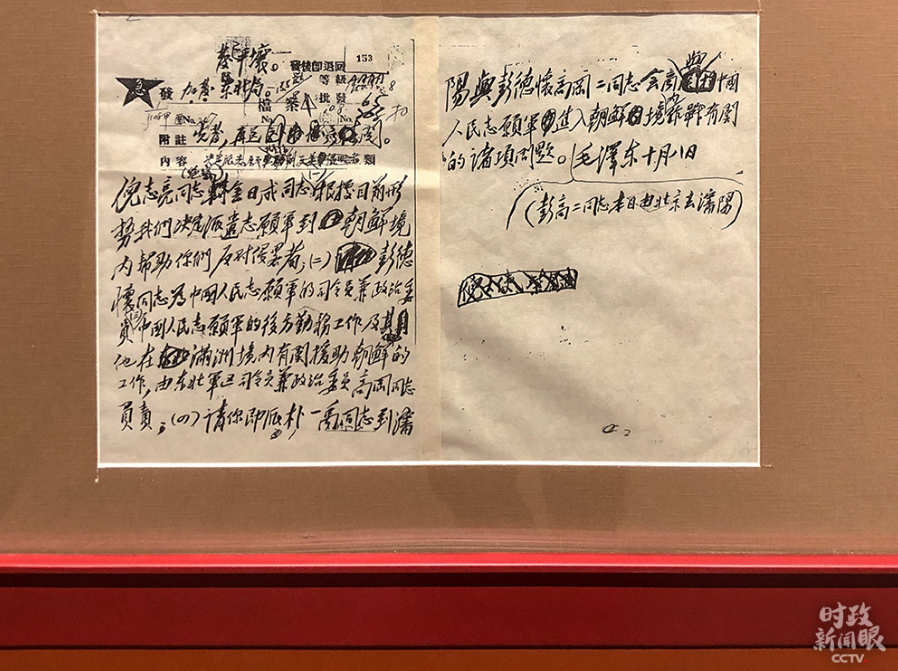 發平壤。
發後即退回
153
急
發
東北局。
檔案
等級
批發
No.
No.
附註
內容
類
倪志亮同志轉金日成同志(一)根據目前形
勢我們決定派遣志願軍到朝鮮境
內幫助你們反對侵畧者;(二)彭德
懷同志為中國人民志願軍的司令員兼政治委
員(三)中國人民志願軍的後方勤務工作及其
他在滿洲境內有関援助朝鮮的
工作,由東北軍区司令員兼政治委員高岡同志
負責;(四)請你即派朴一禹同志到瀋
陽與彭德懷高岡二同志会商與中國
人民志願軍進入朝鮮境作戰有関
的諸項問題。毛澤东十月八日
(彭高二同志本日由北京去瀋陽)
时政
新闻眼
CCTV